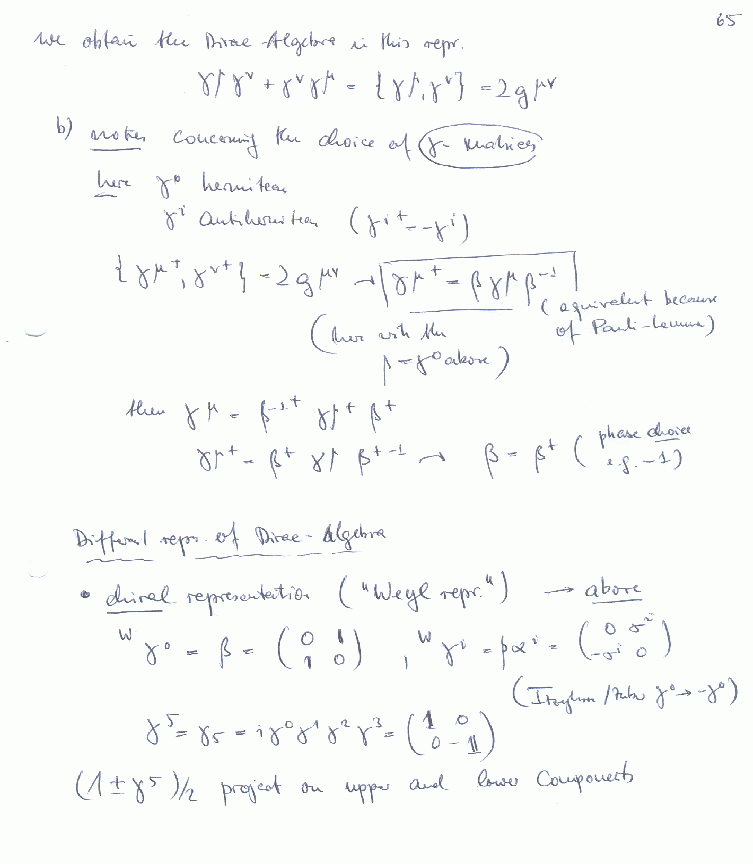 65
we obtain the Dirac-Algebra in this repr.
γ^μ γ^ν + γ^ν γ^μ = {γ^μ, γ^ν} = 2 g^μν
b) notes concerning the choice of γ-matrices
here γ^0 hermitean
γ^i antihermitean (γ^i+ = -γ^i)
{γ^μ+, γ^ν+} = 2 g^μν → γ^μ+ = β γ^μ β^-1
(equivalent because
of Pauli-Lemma)
(here with the
β = γ^0 above)
then γ^μ = β^-1+ γ^μ+ β^+
γ^μ+ = β^+ γ^μ β^+-1 → β = β^+ (phase choice
e.g. -1)
Different repr. of Dirac-Algebra
• chiral representation ("Weyl repr.") → above
W γ^0 = β = ( 0 1 ; 1 0 ) , W γ^i = β α^i = ( 0 σ^i ; -σ^i 0 )
(Itzykson/Zuber γ^0 → -γ^0)
γ^5 = γ_5 = i γ^0 γ^1 γ^2 γ^3 = ( 1 0 ; 0 -1 )
(1 ± γ^5)/2 project on upper and lower components